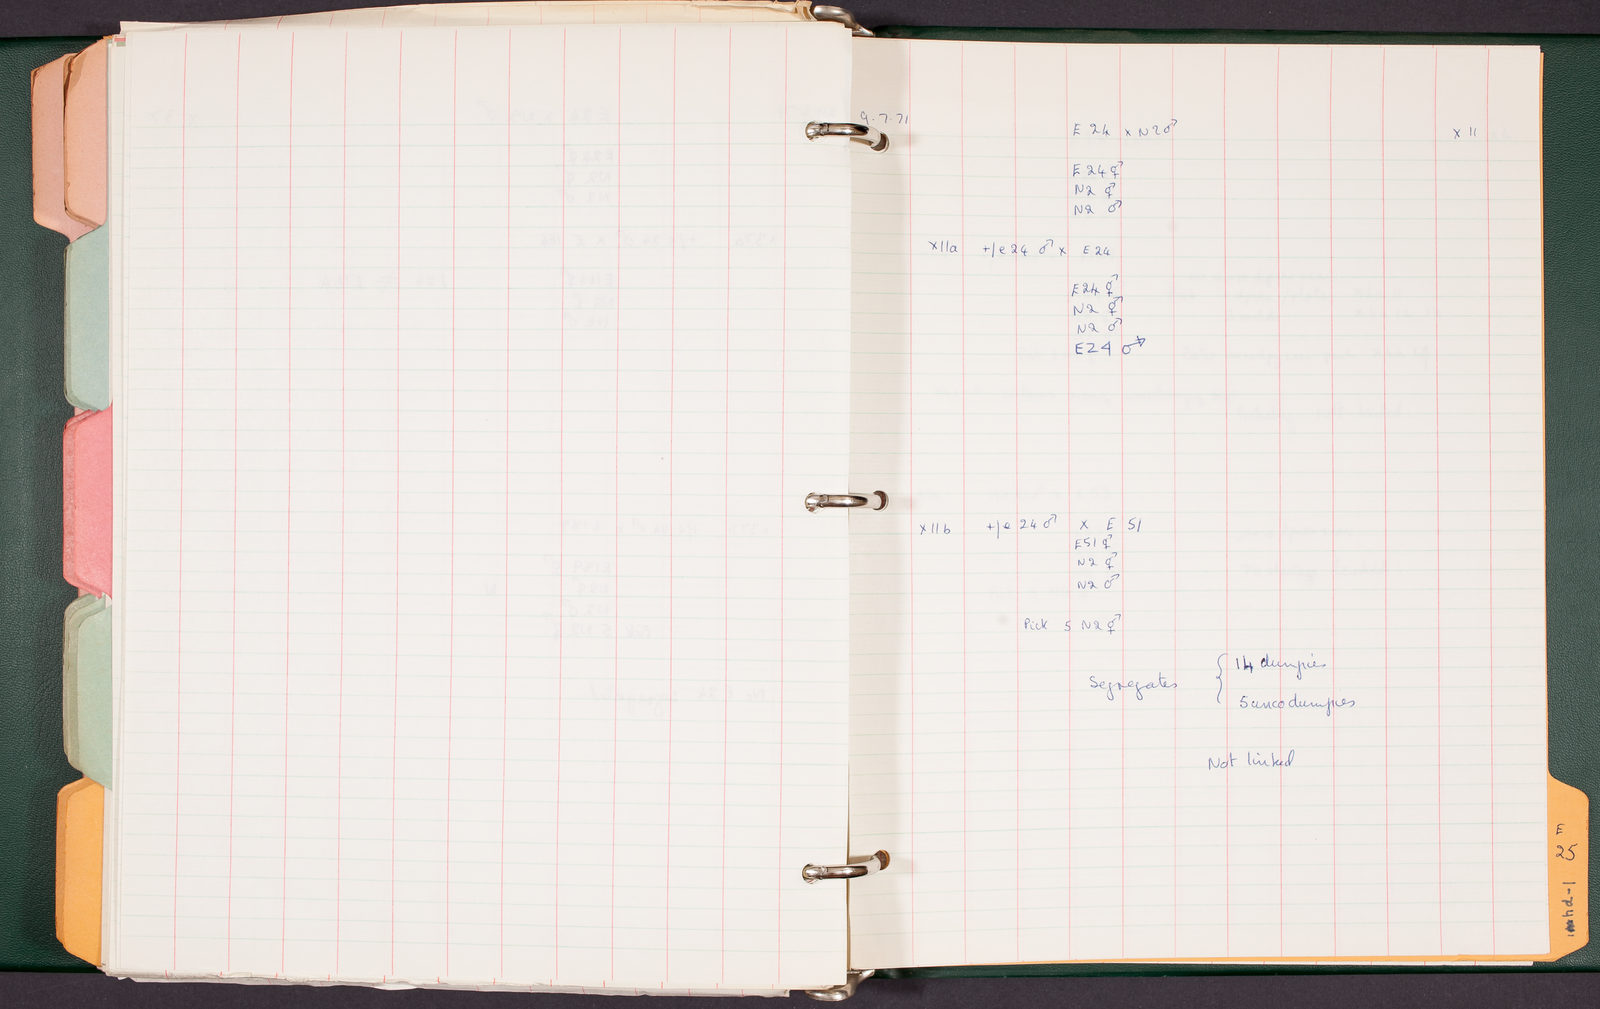 9.7.71
E 24 x N2♂
x 11
E 24 ⚥
N2 ⚥
N2 ♂
x11a +/e 24 ♂ x E 24
E24 ⚥
N2 ⚥
N2 ♂
E24 ♂
x11b +/e 24 ♂ x E 51
E51 ⚥
N2 ⚥
N2 ♂
Pick 5 N2 ⚥
Segregates { 14 dumpies
5 uncodumpies
Not linked
E
25